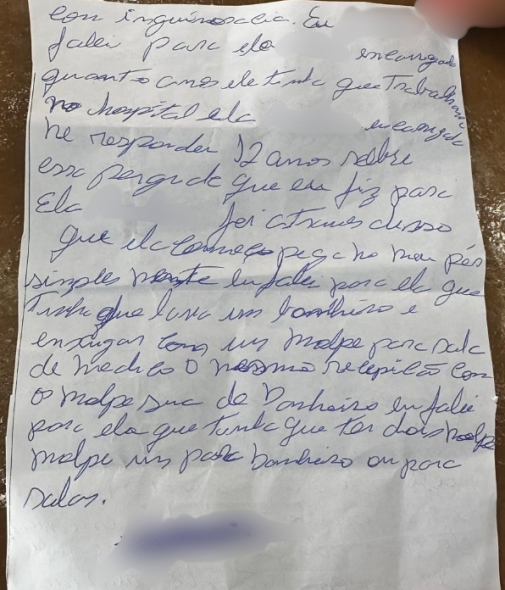 con inguinoracia. Eu
falei para ela encarregada
quanto anos ele tinha que Trabalhava
no hospital ela encarregada
me responder 12 anos sobre
essa pergude que eu fiz para
Ela foi atraves disso
que ela começo pega no meu pés
simples mente eu falei para ela que
Tinha que lava um banheiro e
enxugar com um molpe para sala
de medico o mesmo recepição com
o molpe suc de Banheiro eu falei
para ela que tinha que ter dois molpe
molpe um para banheiro ou para
salas.